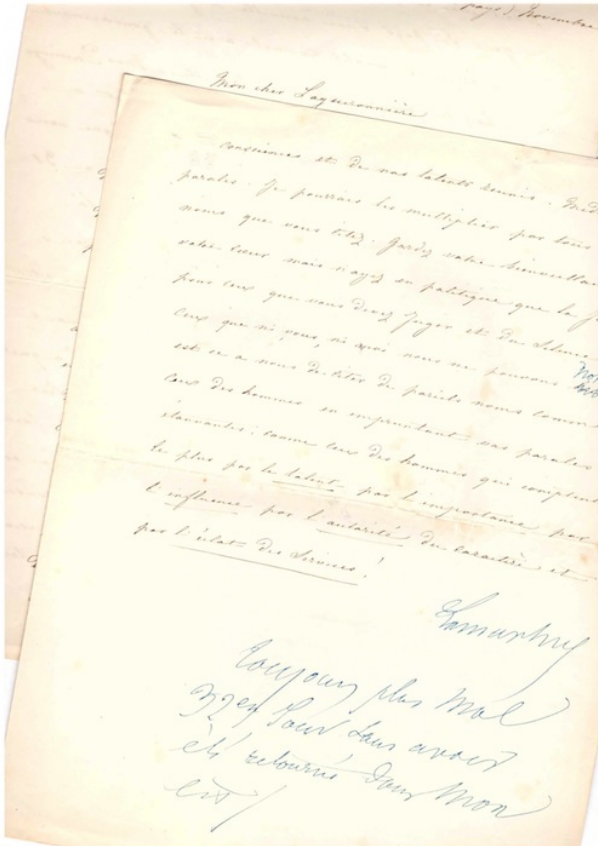 pays 5 Novembre
Mon cher Lagueronnière
consciences et de nos talents réunis.
paroles. Je pourrais les multiplier par tous
noms que vous citez. Gardez votre bienveillan
votre coeur mais n'ayez en politique que la
pour ceux que vous devez juger et du silence
ceux que ni vous, ni moi nous ne pouvons
est ce a nous de citer de pareils noms comm
ceux des hommes en empruntant vos paroles
étonnantes: comme ceux des hommes qui comptent
le plus par le talent, par l'importance par
l'influence par l'autorité du caractère et
par l'éclat des services!
Lamartine
toujours plus mal
32e jour sans avoir
été retourné dans mon
lit